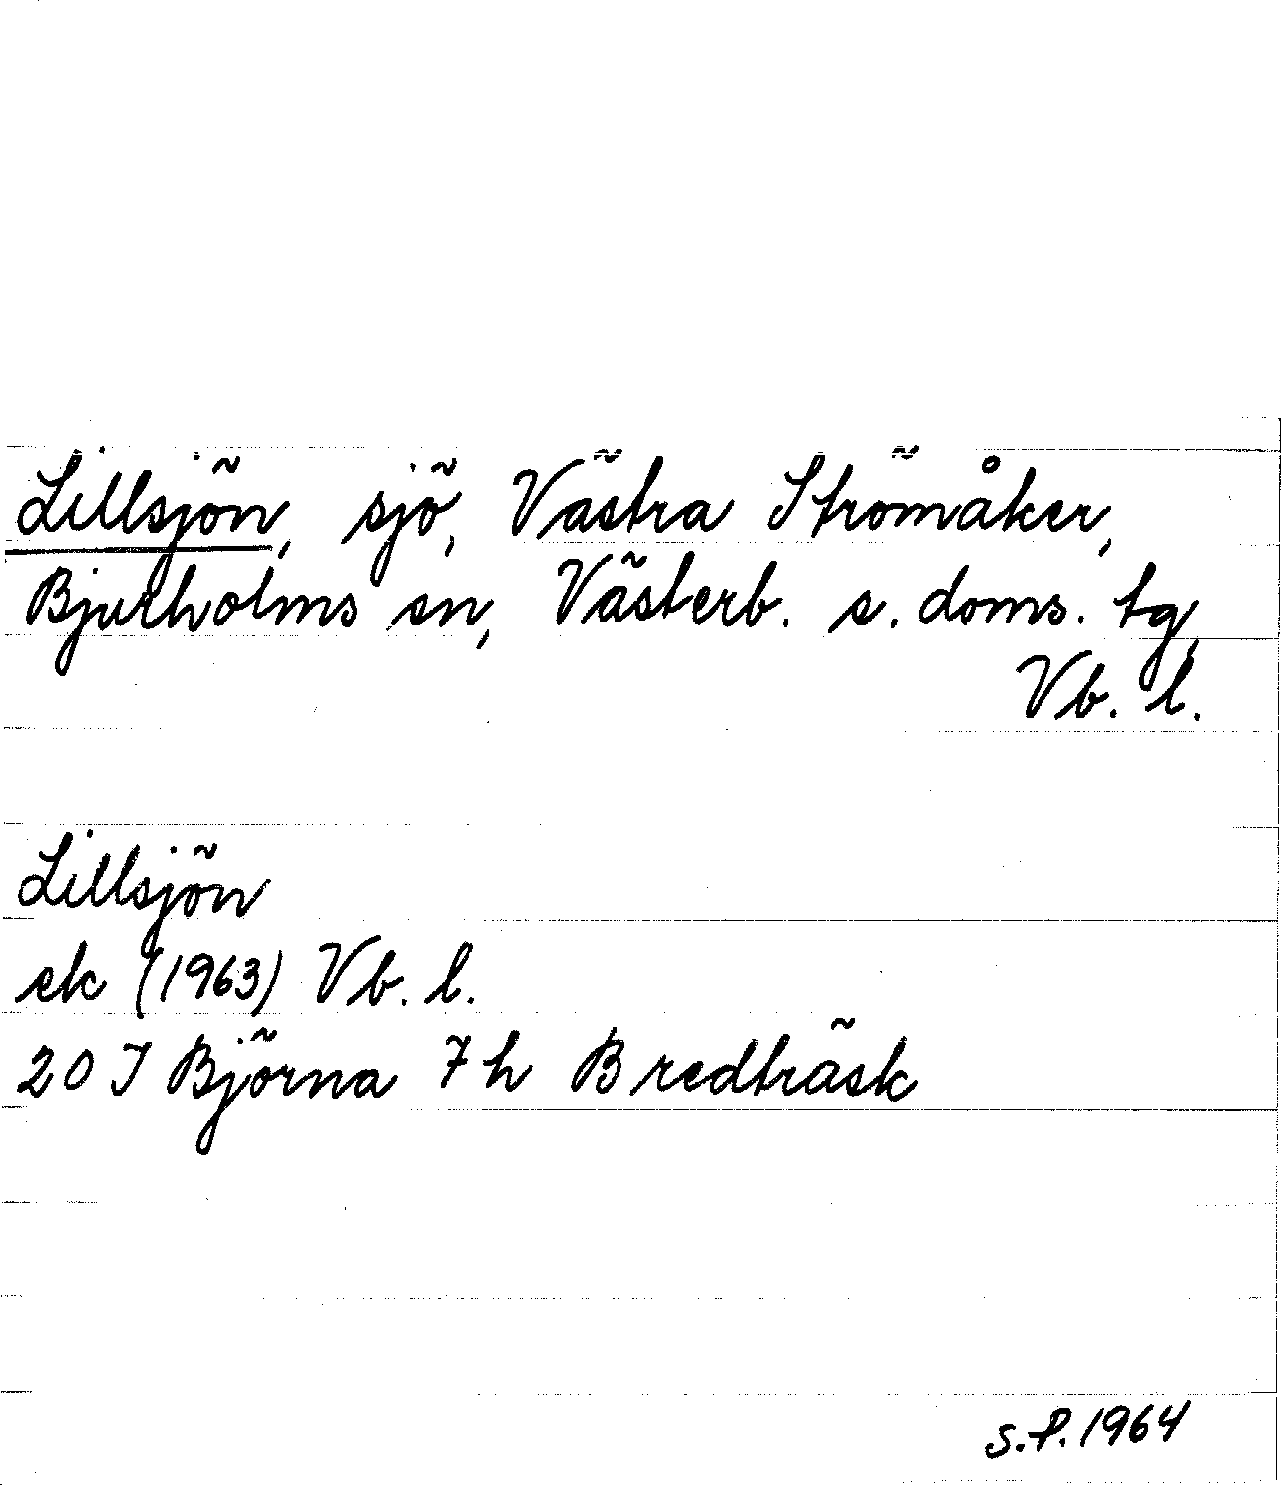 Lillsjön, sjö, Västra Strömåker,
Bjurholms sn, Västerb. s. doms. tg,
Vb. l.
Lillsjön
ek (1963) Vb. l.
20 J Björna 7 h Bredträsk
S.P. 1964